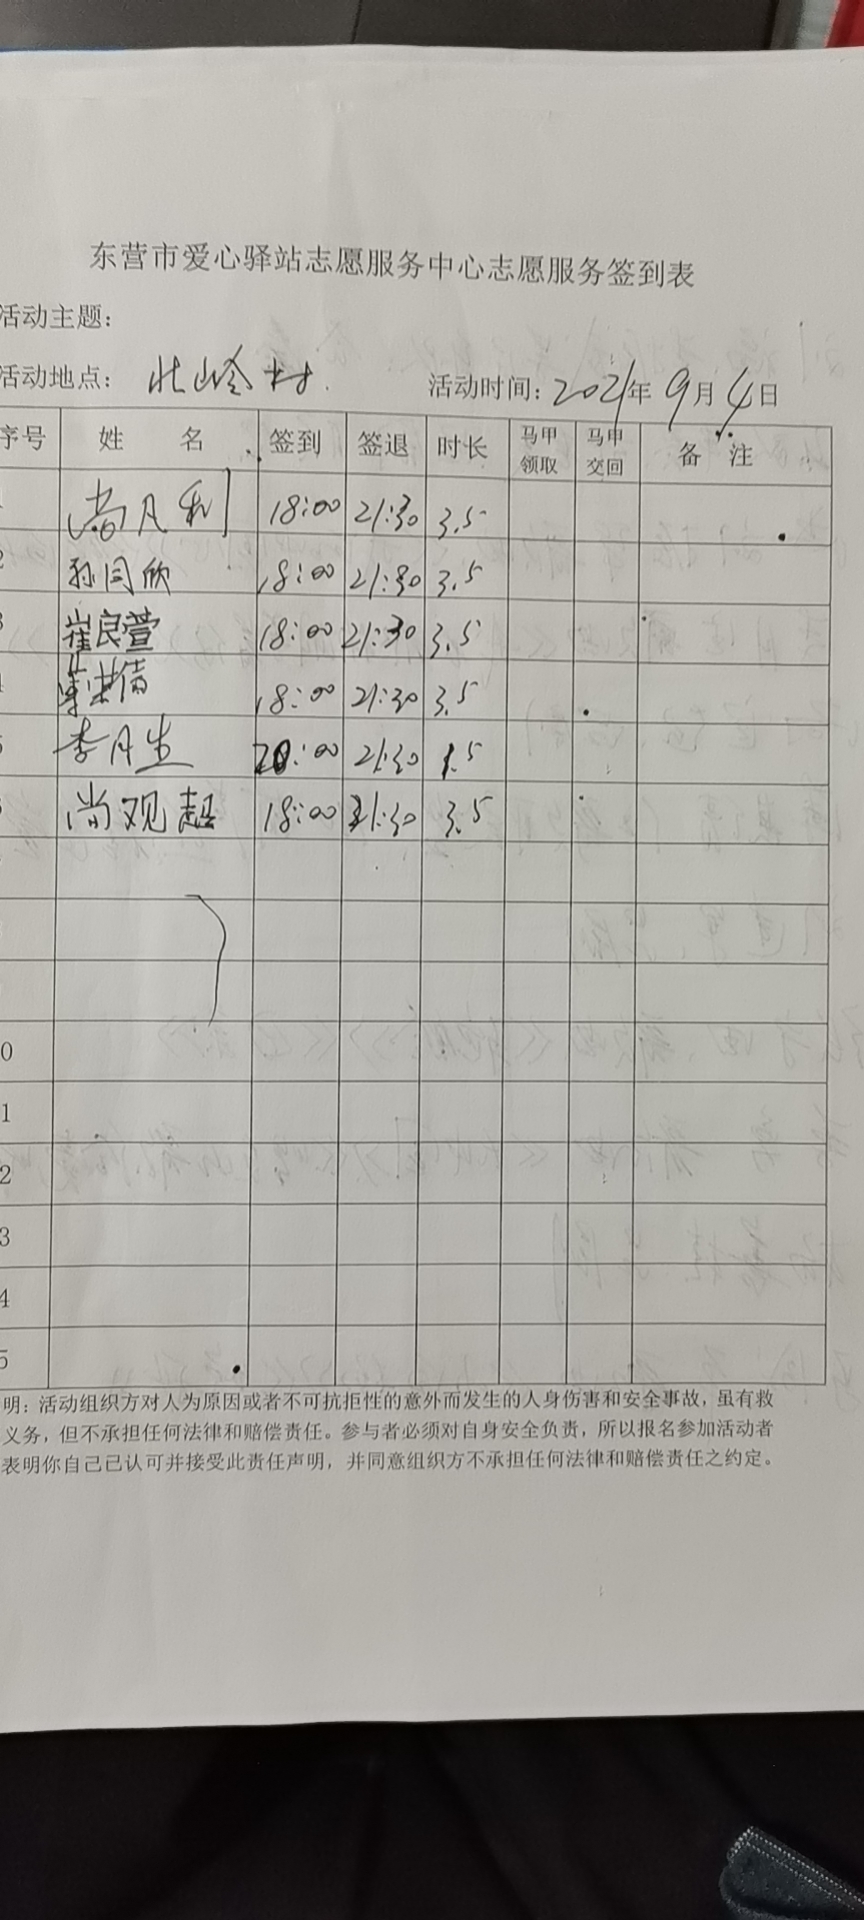 东营市爱心驿站志愿服务中心志愿服务签到表
活动主题：
活动地点： 北岭村 活动时间：2021年9月4日
序号 姓 名 签到 签退 时长 马甲领取 马甲交回 备 注
18:00 21:30 3.5
2 孙同欣 18:00 21:30 3.5
3 崔良萱 18:00 21:30 3.5
18:00 21:30 3.5
5 李月生 20:00 21:30 1.5
尚观超 18:00 21:30 3.5
0
1
2
3
4
5
明：活动组织方对人为原因或者不可抗拒性的意外而发生的人身伤害和安全事故，虽有救
义务，但不承担任何法律和赔偿责任。参与者必须对自身安全负责，所以报名参加活动者
表明你自己已认可并接受此责任声明，并同意组织方不承担任何法律和赔偿责任之约定。